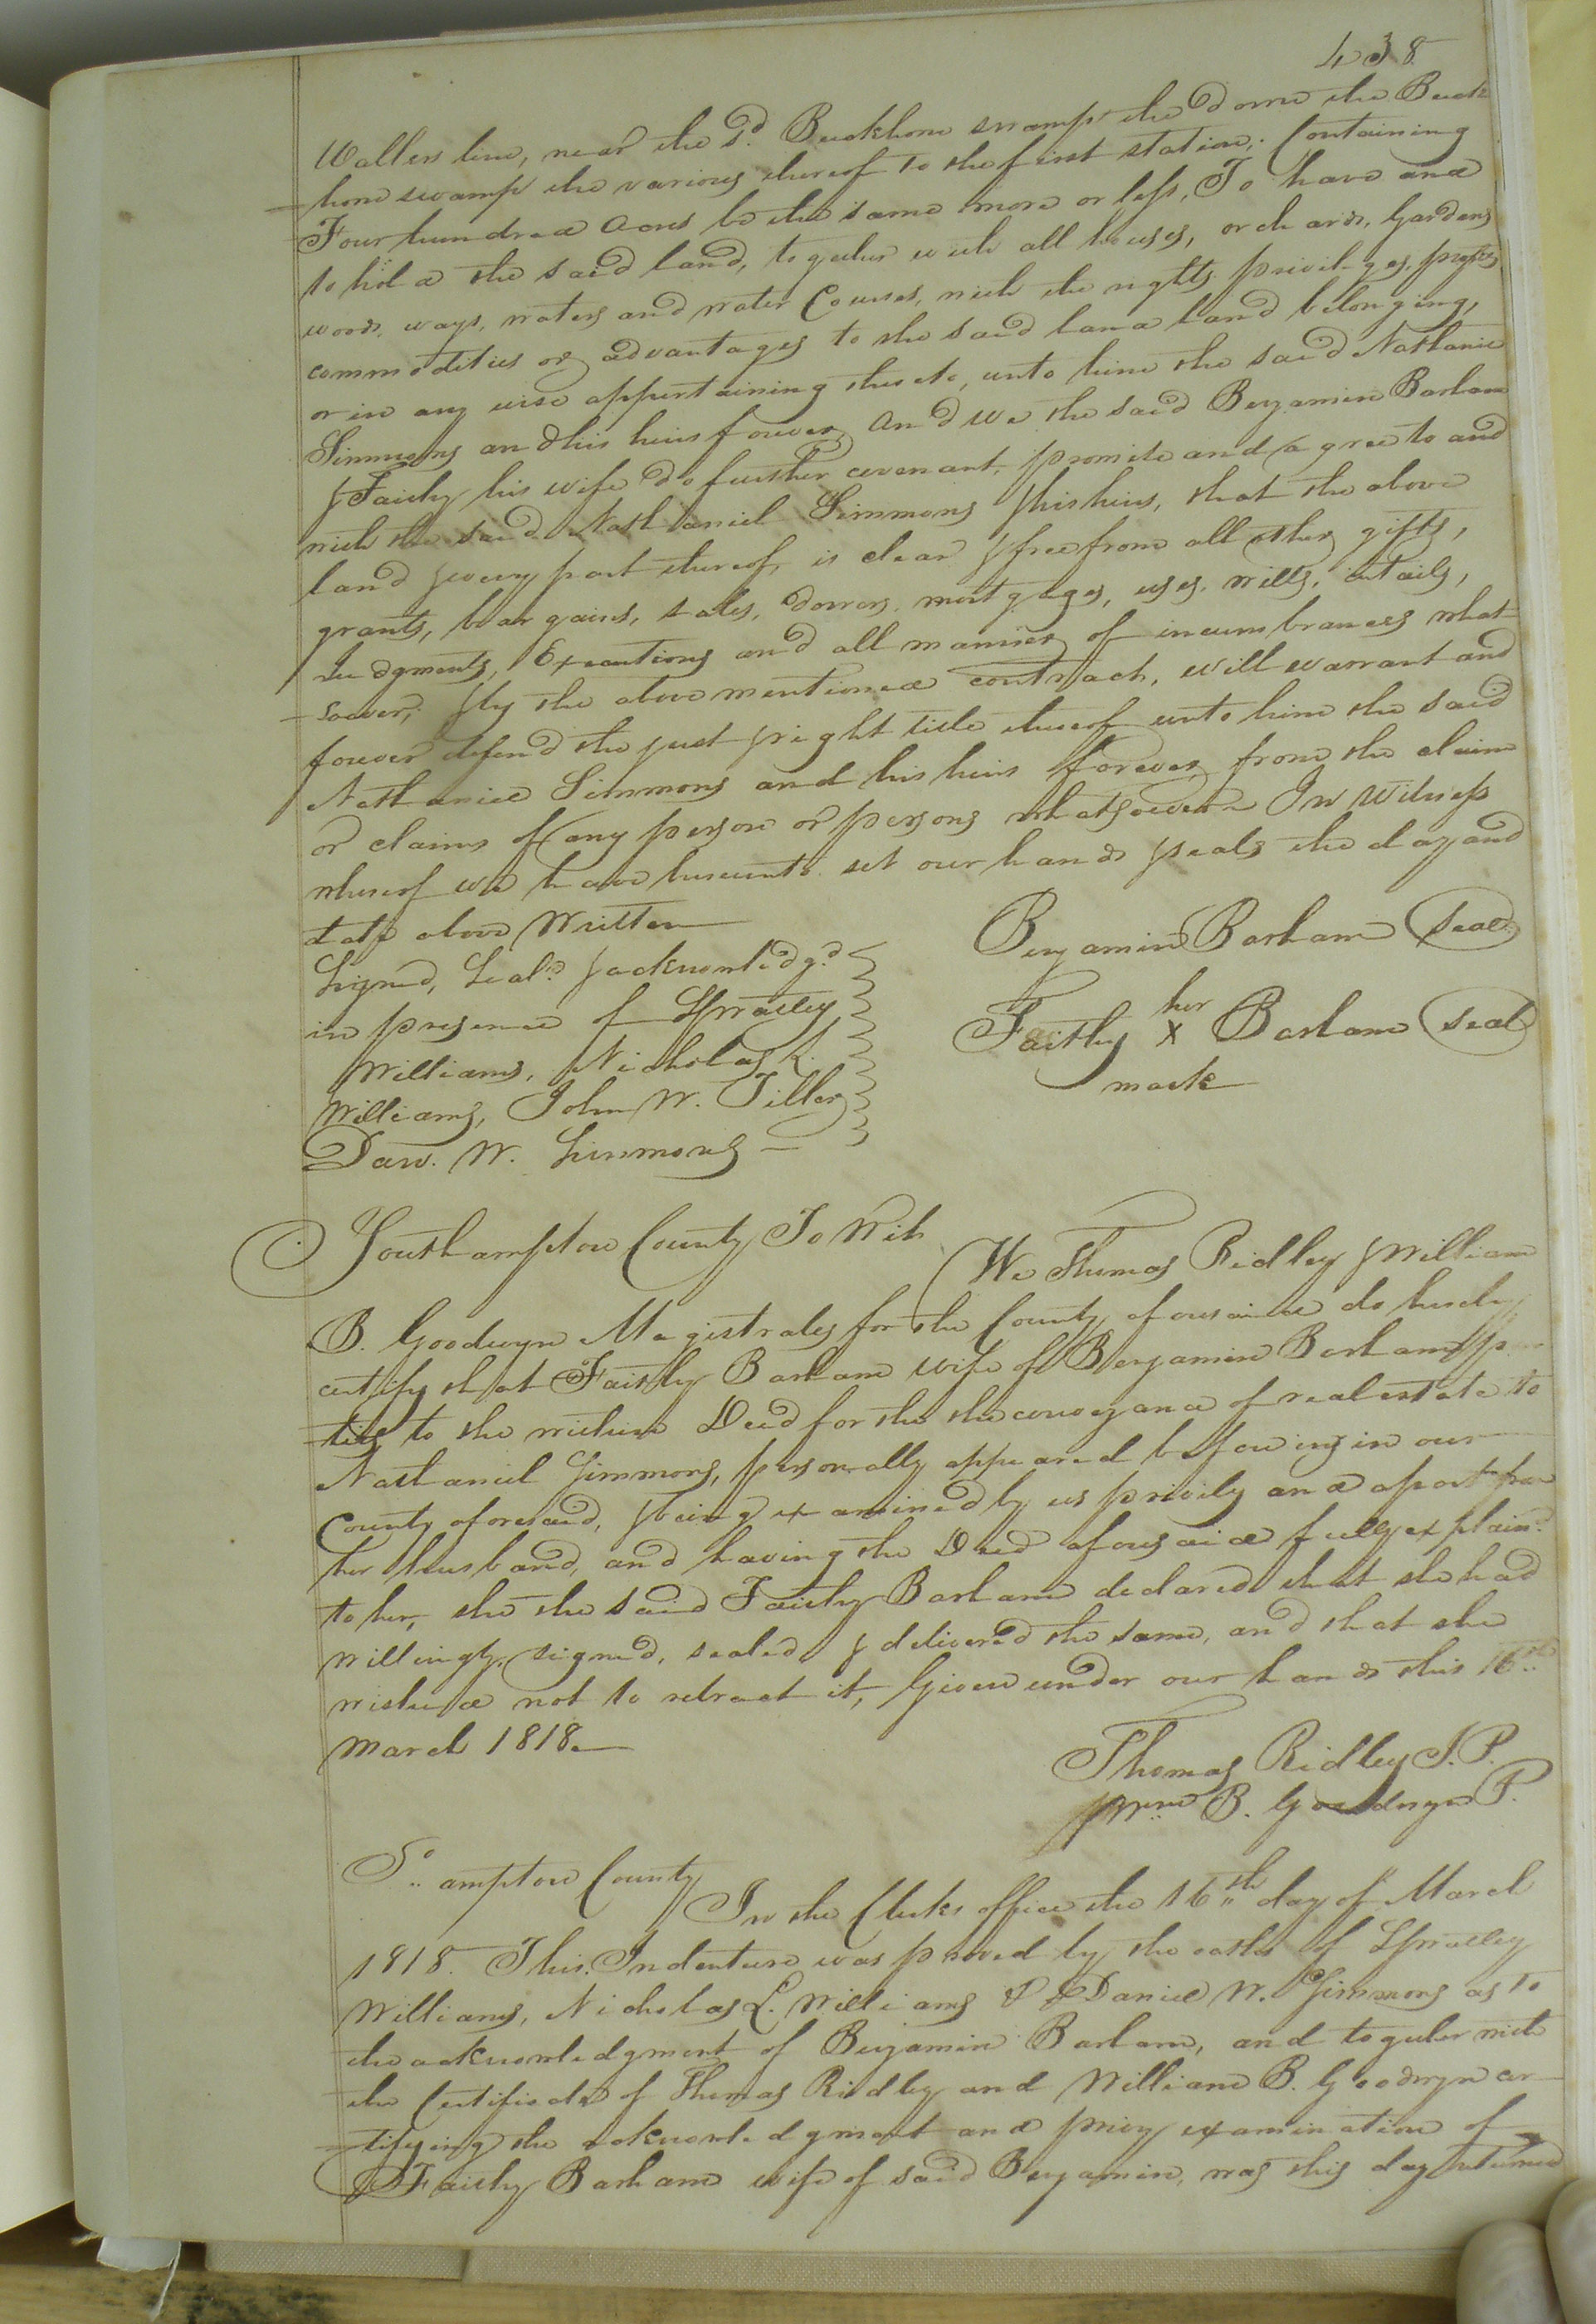 438
Wallers line, near the sd. Buckhorn swamp the down the Buck
horn swamp the various thereof to the first station; Containing
Four hundred acres be the same more or less, To have and
to hold the said land, together with all houses, orchards, Gardens
woods, ways, waters and water Courses, with the rights, privileges, profits
commodities or advantages to the said land land belonging,
or in any wise appertaining thereto, unto him the said Nathaniel
Simmons and his heirs forever, And we the said Benjamin Barham
& Faithy his wife do further covenant, promise and agree to and
with the said Nathaniel Simmons & his heirs, that the above
land & every part thereof, is clear & free from all other gifts,
grants, bargains, sales, dowers, mortgages, uses, wills, intails,
Judgments, Executions and all manner of incumbrances what
soever; & by the above mentioned contract, will warrant and
forever defend the just & right title thereof unto him the said
Nathaniel Simmons and his heirs forever, from the claim
or claims of any person or persons whatsoever In Witness
whereof we have hereunto set our hands & seals the day and
date above Written
Signed, Seald. & acknowledgd.
in presence of Spratley
Williams, Nicholas L.
Williams, John W. Tiller
Danl. W. Simmons
Benjamin Barham Seal
her
Faithy X Barham Seal
mark
Southampton County To Wit
We Thomas Ridley & William
B. Goodwyn Magistrates for the County aforesaid do hereby
certify that Faithy Barham wife of Benjamin Barham par
ties to the within Deed for the the conveyance of real estate to
Nathaniel Simmons, personally appeared before us in our
County aforesaid, & being examined by us privily and apart from
her husband, and having the Deed aforesaid fully explaind.
to her, she the said Faithy Barham declared that she had
willingly signed, sealed & delivered the same, and that she
wished not to retract it, Given under our hands this 16th
March 1818.
Thomas Ridley J.P.
Wm. B. Goodwyn P.
So. ampton County
In the Clerks office the 16th day of March
1818. This Indenture was proved by the oaths of Spratley
Williams, Nicholas L. Williams & Daniel W. Simmons as to
the acknowledgment of Benjamin Barham, and together with
the Certificate of Thomas Ridley and William B. Goodwyn cer
tifying the acknowledgment and privy examination of
Faithy Barham wife of said Benjamin, was this day returned